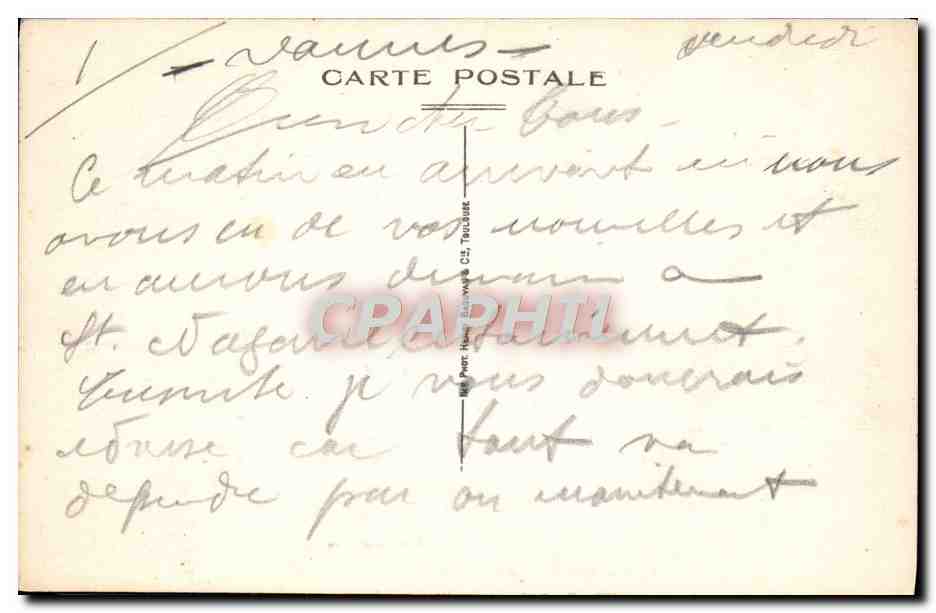 1/ - Vannes - vendredi
CARTE POSTALE
Bien cher tous -
Ce matin en arrivant ici nous
avons eu de vos nouvelles et
en aurons demain a
St. Nazaire
CPAPHIL
Ensuite je vous donnerais
adresse car tout va
dependre par ou maintenant
IMP. PHOT. HENRY BASUYAU & Cie, TOULOUSE